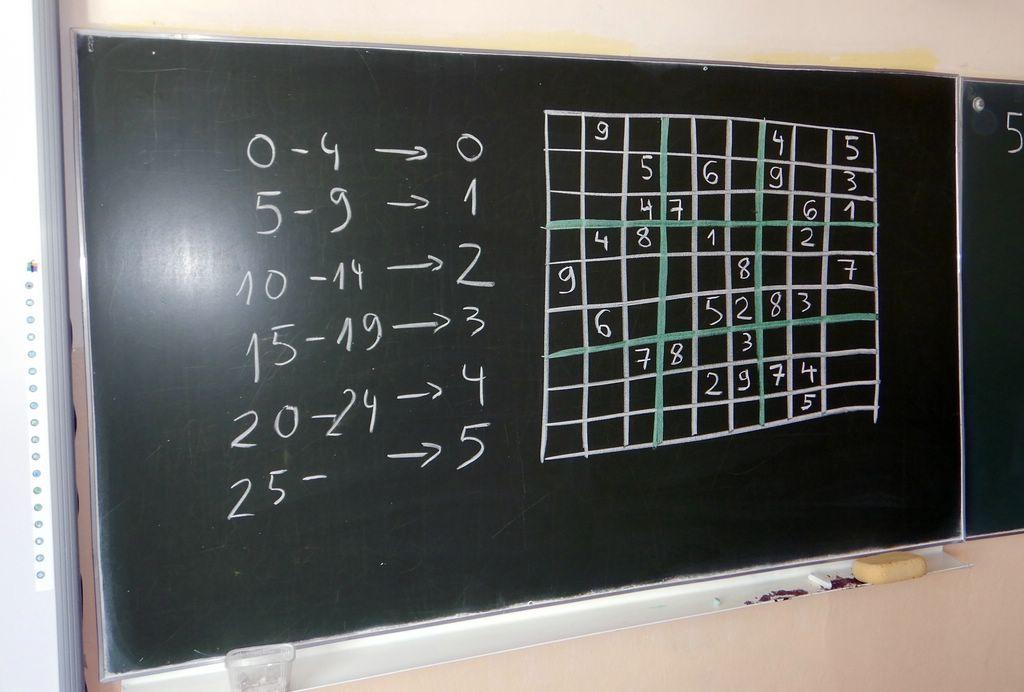 0 - 4 → 0
5 - 9 → 1
10 - 14 → 2
15 - 19 → 3
20 - 24 → 4
25 - → 5
9 4 5
5 6 9 3
4 7 6 1
4 8 1 2
9 8 7
6 5 2 8 3
7 8 3
2 9 7 4
5
5